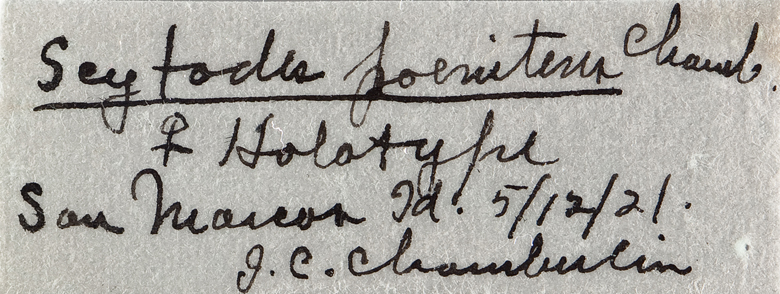 Scytodes poenitens Chamb.
♀ Holotype
San Marcos Id. 5/12/21.
J. C. Chamberlin